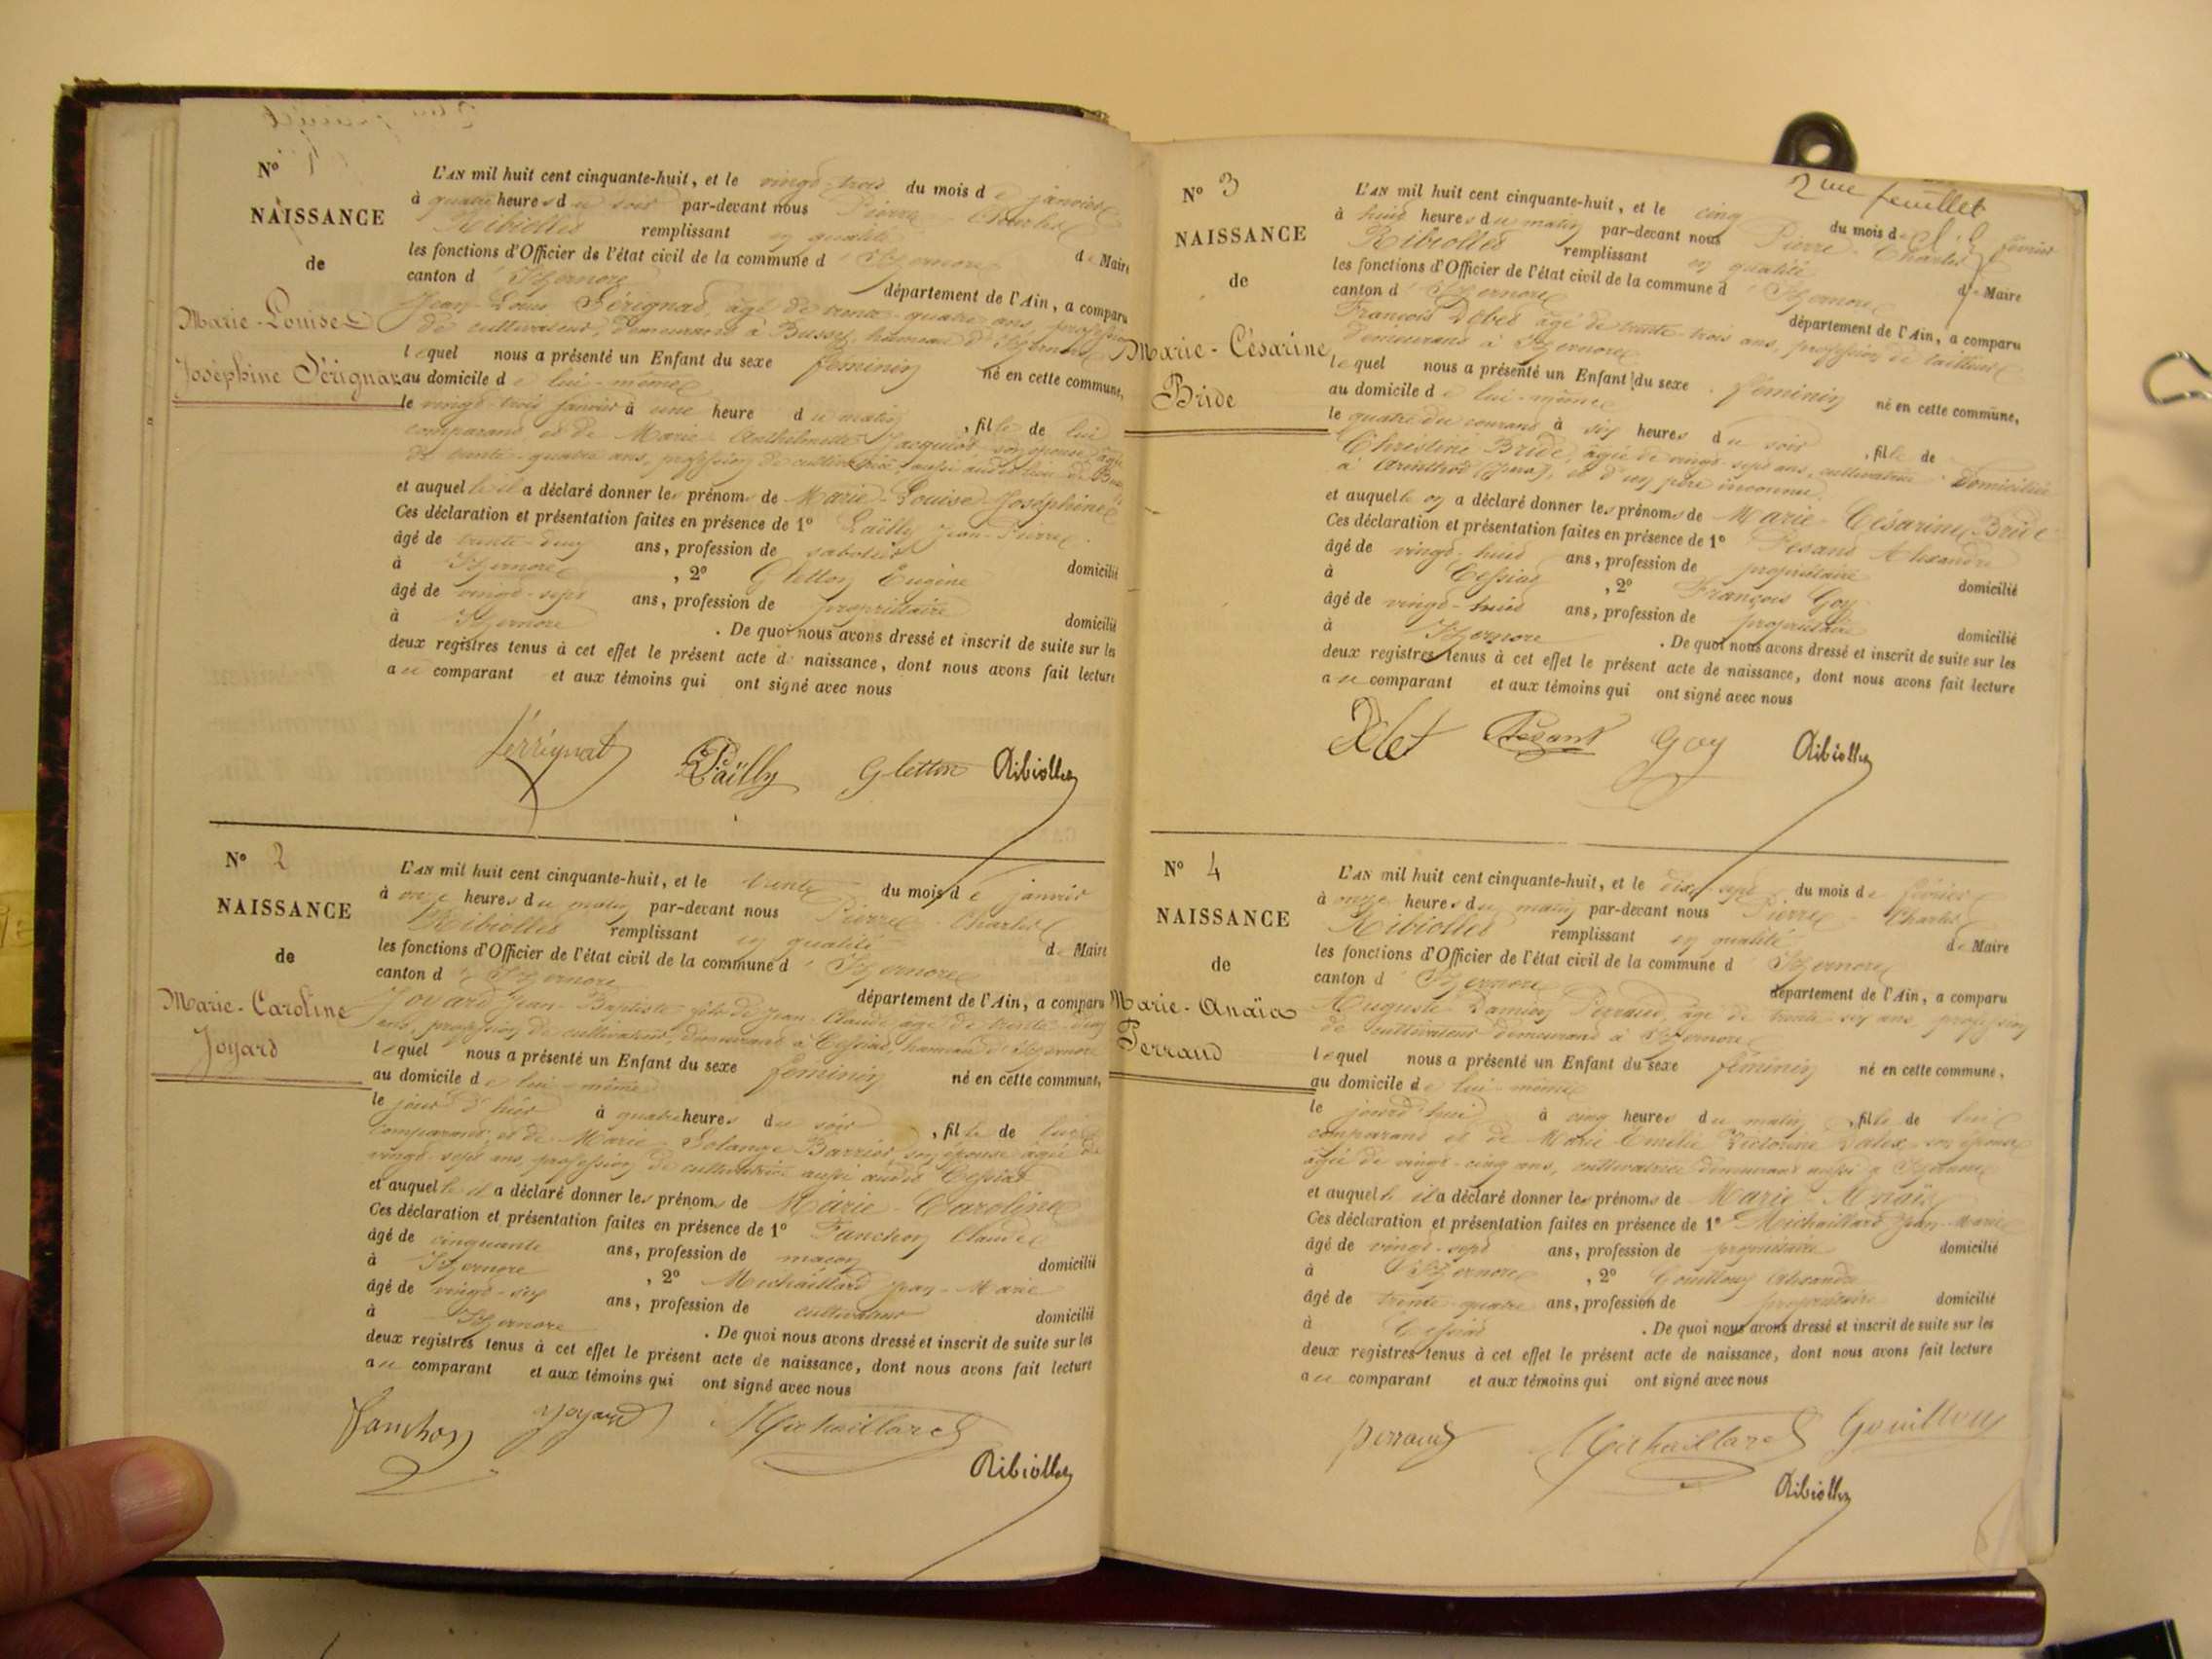 N° 1
NAISSANCE
de
Marie-Louise
Joséphine Sérignat
L'AN mil huit cent cinquante-huit, et le vingt-trois du mois de janvier
à quatre heures du soir par-devant nous Pierre Charles
Ribiollet remplissant en qualité de Maire
les fonctions d'Officier de l'état civil de la commune d'Izernore
canton d'Izernore département de l'Ain, a comparu
Jean-Louis Sérignat, âgé de trente-quatre ans, profession
de cultivateur, demeurant à Bussy, hameau d'Izernore
lequel nous a présenté un Enfant du sexe féminin né en cette commune,
au domicile de lui-même
le vingt-trois janvier à une heure du matin, fille de lui
comparant et de Marie Anthelmette Jacquiot son épouse, âgée
de trente-quatre ans, profession de cultivatrice aussi
et auquelle il a déclaré donner les prénoms de Marie-Louise-Joséphine
Ces déclaration et présentation faites en présence de 1° Pailly Jean-Pierre
âgé de trente-deux ans, profession de sabotier domicilié
à Izernore, 2° Gletton Eugène
âgé de vingt-sept ans, profession de propriétaire domicilié
à Izernore. De quoi nous avons dressé et inscrit de suite sur les
deux registres tenus à cet effet le présent acte de naissance, dont nous avons fait lecture
au comparant et aux témoins qui ont signé avec nous
Serrignat Pailly Gletton Ribiollet
N° 2
NAISSANCE
de
Marie-Caroline
Joyard
L'AN mil huit cent cinquante-huit, et le trente du mois de janvier
à onze heures du matin par-devant nous Pierre Charles
Ribiollet remplissant en qualité de Maire
les fonctions d'Officier de l'état civil de la commune d'Izernore
canton d'Izernore département de l'Ain, a comparu
Joyard Jean-Baptiste fils de Jean-Claude âgé de trente-cinq
ans, profession de cultivateur, demeurant à Cessiat, hameau d'Izernore
lequel nous a présenté un Enfant du sexe féminin né en cette commune,
au domicile de lui-même
le jour d'hier à quatre heures du soir, fille de lui
comparant et de Marie-Solange Barrier, son épouse âgée de
vingt-sept ans, profession de cultivatrice aussi audit Cessiat
et auquelle il a déclaré donner les prénoms de Marie-Caroline
Ces déclaration et présentation faites en présence de 1° Fanchon Claude
âgé de cinquante ans, profession de maçon domicilié
à Izernore, 2° Michaillard Jean-Marie
âgé de vingt-six ans, profession de cultivateur domicilié
à Izernore. De quoi nous avons dressé et inscrit de suite sur les
deux registres tenus à cet effet le présent acte de naissance, dont nous avons fait lecture
au comparant et aux témoins qui ont signé avec nous
Fanchon Joyard Michaillard
Ribiollet
2me feuillet
N° 3
NAISSANCE
de
Marie-Césarine
Bride
L'AN mil huit cent cinquante-huit, et le cinq du mois de février
à huit heures du matin par-devant nous Pierre-Charles
Ribiollet remplissant en qualité de Maire
les fonctions d'Officier de l'état civil de la commune d'Izernore
canton d'Izernore département de l'Ain, a comparu
François Delet âgé de trente-trois ans, profession de tailleur
demeurant à Izernore
lequel nous a présenté un Enfant du sexe féminin né en cette commune,
au domicile de lui-même
le quatre du courant à six heures du soir, fille de
Christine Bride, âgée de vingt-sept ans, cultivatrice domiciliée
à Arinthod (Jura), et d'un père inconnu.
et auquelle on a déclaré donner les prénoms de Marie-Césarine Bride
Ces déclaration et présentation faites en présence de 1° Pesant Alexandre
âgé de vingt-huit ans, profession de propriétaire domicilié
à Cessiat, 2° François Goy
âgé de vingt-huit ans, profession de propriétaire domicilié
à Izernore. De quoi nous avons dressé et inscrit de suite sur les
deux registres tenus à cet effet le présent acte de naissance, dont nous avons fait lecture
au comparant et aux témoins qui ont signé avec nous
Delet Pesant Goy Ribiollet
N° 4
NAISSANCE
de
Marie-Anaïs
Perraud
L'AN mil huit cent cinquante-huit, et le dix-sept du mois de février
à onze heures du matin par-devant nous Pierre Charles
Ribiollet remplissant en qualité de Maire
les fonctions d'Officier de l'état civil de la commune d'Izernore
canton d'Izernore département de l'Ain, a comparu
Auguste Damien Perraud, âgé de trente-six ans, profession
de cultivateur demeurant à Izernore
lequel nous a présenté un Enfant du sexe féminin né en cette commune,
au domicile de lui-même
le jourd'hui à cinq heures du matin, fille de lui
comparant et de Marie Emélie Victorine Dalex son épouse
âgée de vingt-cinq ans, cultivatrice demeurant aussi à Izernore
et auquelle il a déclaré donner les prénoms de Marie-Anaïs
Ces déclaration et présentation faites en présence de 1° Michaillard Jean-Marie
âgé de vingt-sept ans, profession de propriétaire domicilié
à Izernore, 2° Gouilloux Alexandre
âgé de trente-quatre ans, profession de propriétaire domicilié
à Cessiat. De quoi nous avons dressé et inscrit de suite sur les
deux registres tenus à cet effet le présent acte de naissance, dont nous avons fait lecture
au comparant et aux témoins qui ont signé avec nous
Perraud Michaillard Gouilloux
Ribiollet